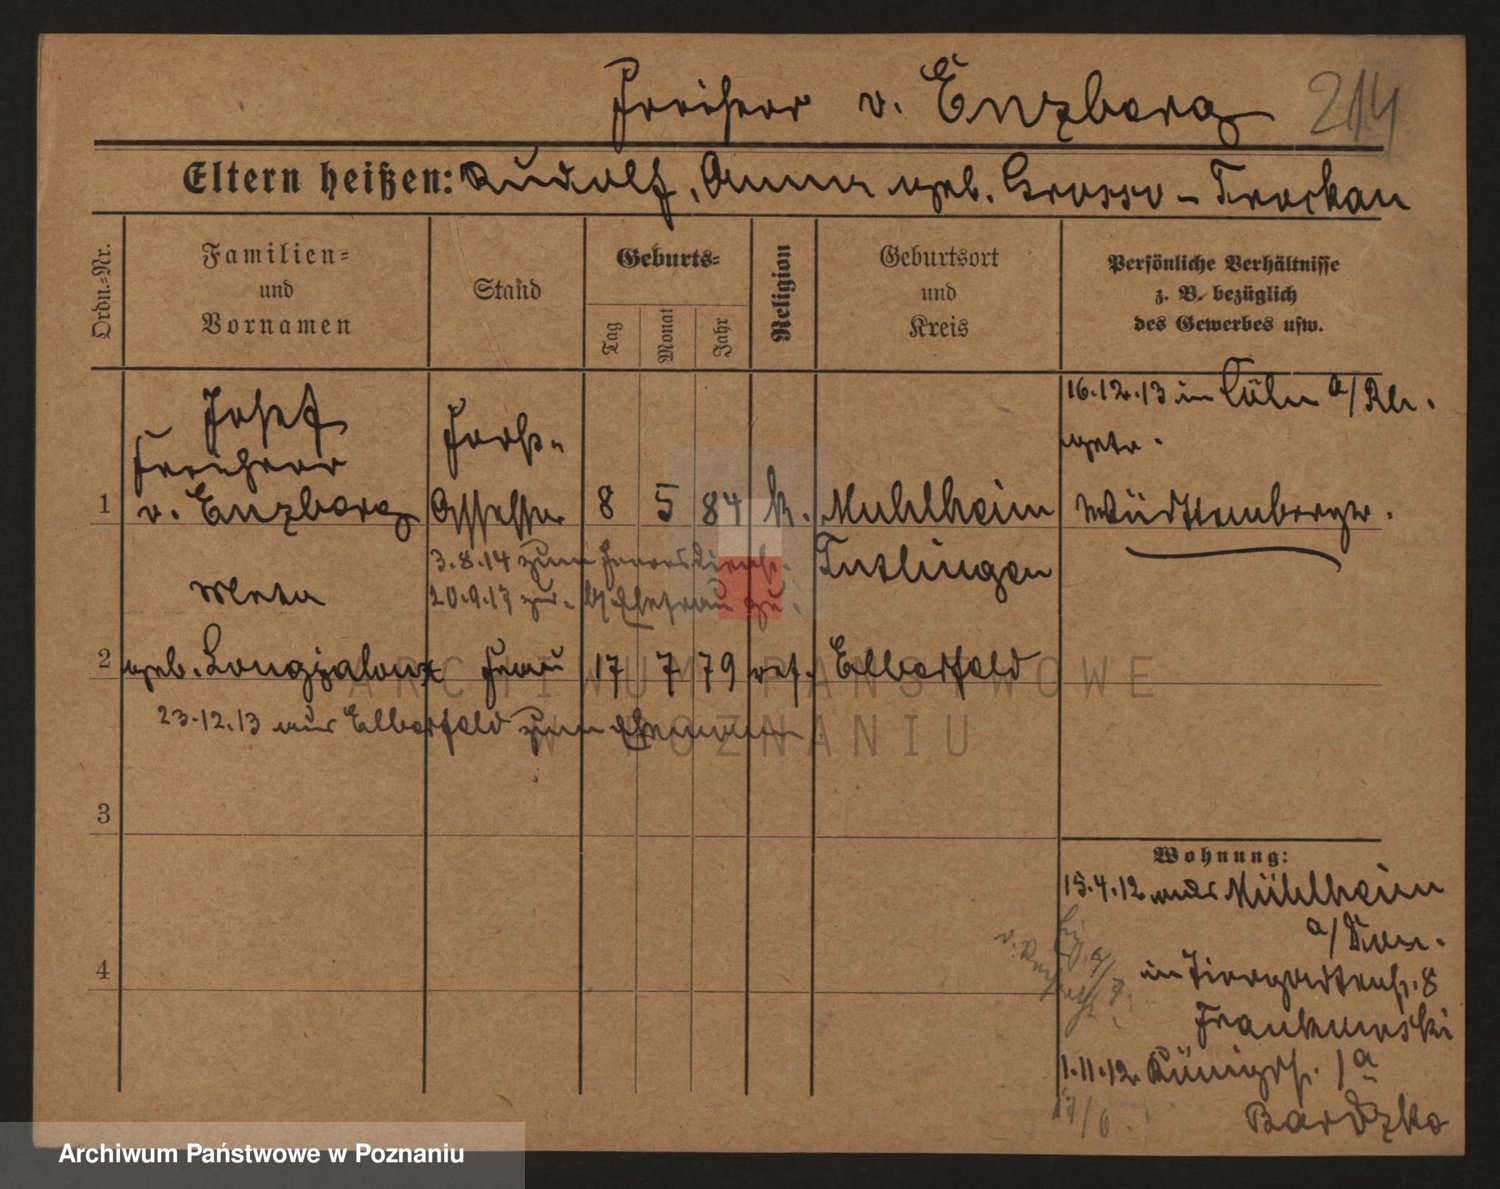 Freiherr v. Enzberg 214
Eltern heißen: Rudolf, Anna geb. Gross v. Trockau
Ordn.-Nr.
Familien- und Vornamen
Stand
Geburts-
Tag Monat Jahr
Religion
Geburtsort und Kreis
Persönliche Verhältnisse
z. B. bezüglich
des Gewerbes usw.
16.12.13 in Cöln a/Rh.
getr.
Josef
Freiherr
Forst-
1 v. Enzberg Assessor 8 5 84 k. Muhlheim Württemberger.
3.8.14 zum Heeresdienst.
Tutlingen
Meta
20.9.17 zur. Ehefrau zu.
2 geb. Frau 17 7 79 ref. Elberfeld
23.12.13 aus Elberfeld zum Ehemann
3
4
Wohnung:
15.4.12 aus Mühlheim
a/Don.
in Tiergartenstr. 8
Frankowski
1.11.12 Königstr. 1a
Bardzko
17/6
ARCHIWUM PAŃSTWOWE
W POZNANIU
Archiwum Państwowe w Poznaniu